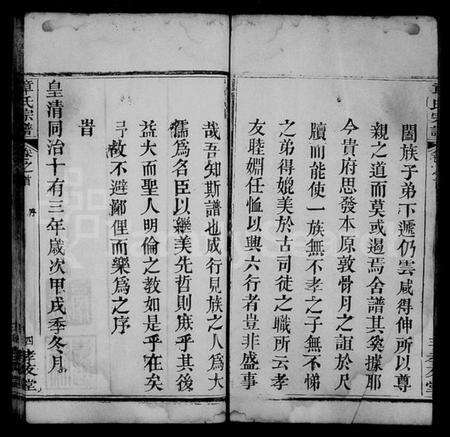 闔族子弟下遞仍雲咸得伸所以尊
親之道而莫或遏焉舍譜其奚據耶
今貴府思發本原敦骨月之誼於尺
牘而能使一族無不孝之子無不悌
之弟得媲美於古司徒之職所云孝
友睦婣任恤以興六行者豈非盛事
哉吾知斯譜也成行見族之人為大
儒為名臣以繼美先哲則庶乎其後
益大而聖人明倫之教如是乎在矣
故不避鄙俚而樂為之序
旹
皇清同治十有三年歲次甲戌季冬月
章氏宗譜
卷之首
序
四
老友堂